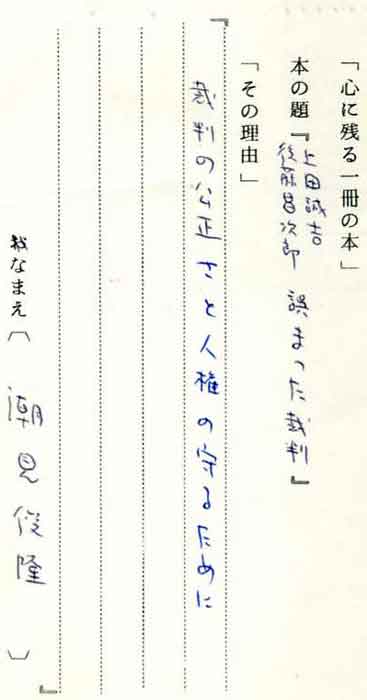 「心に残る一冊の本」
本の題『上田誠吉
後藤昌次郎 誤まった裁判』
「その理由」
『裁判の公正さと人権の守るために
』
おなまえ〔 潮見俊隆 〕